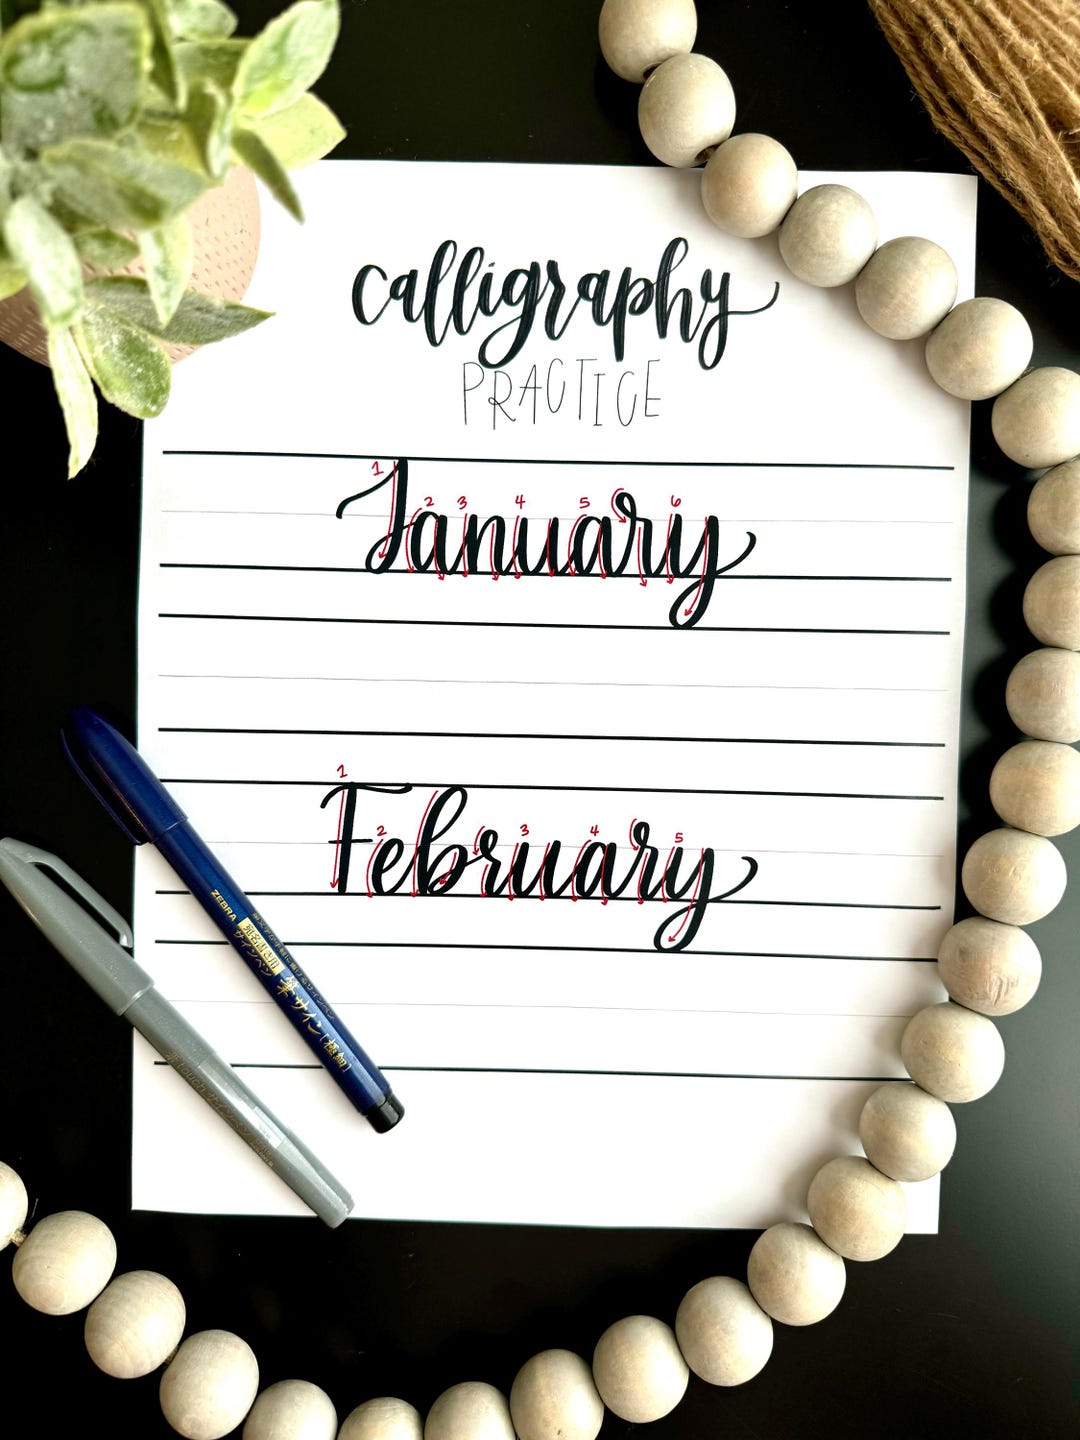 calligraphy
PRACTICE
1 2 3 4 5 6
January
1 2 3 4 5
February
ZEBRA
サインペン
筆サイン[極細]